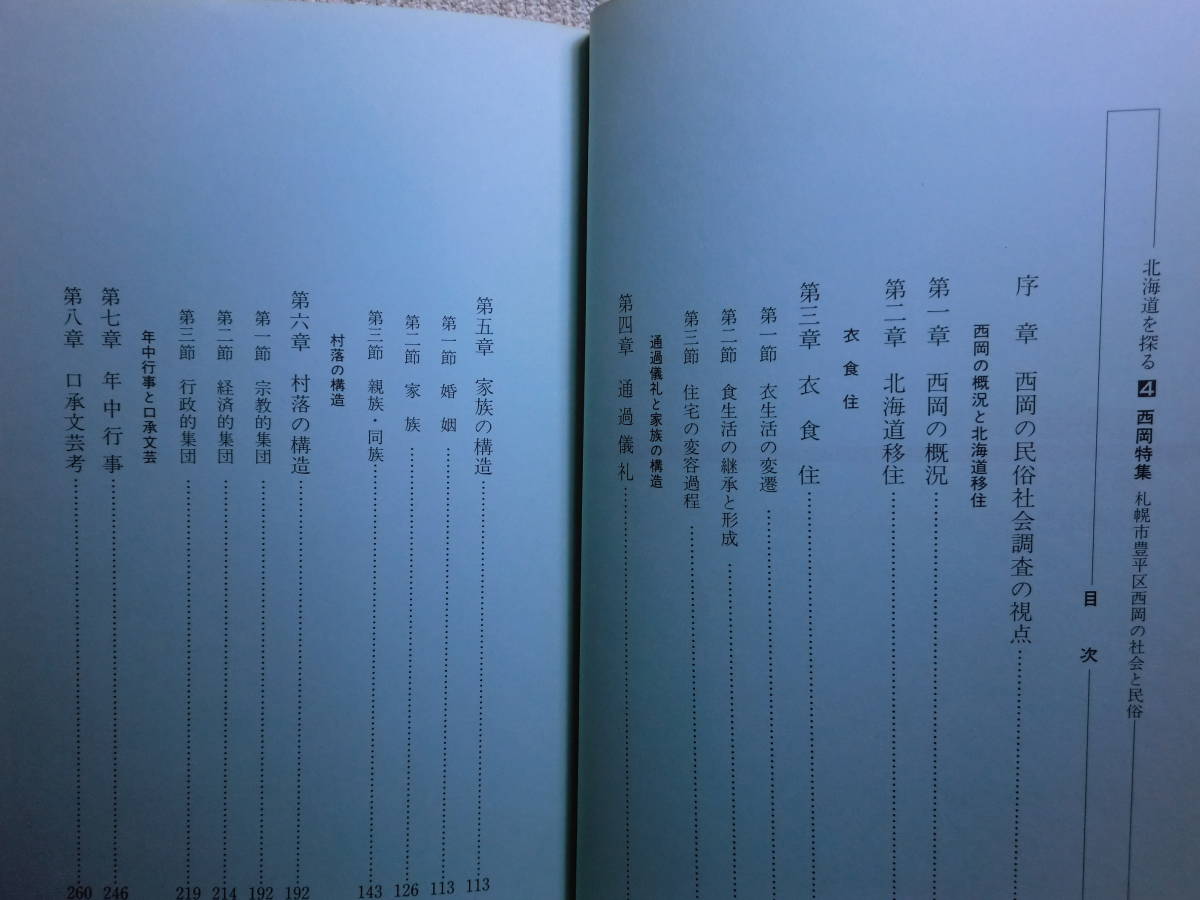 北海道を探る 4 西岡特集 札幌市豊平区西岡の社会と民俗
目 次
序 章 西岡の民俗社会調査の視点
西岡の概況と北海道移住
第一章 西岡の概況
第二章 北海道移住
衣 食 住
第三章 衣 食 住
第一節 衣生活の変遷
第二節 食生活の継承と形成
第三節 住宅の変容過程
通過儀礼と家族の構造
第四章 通 過 儀 礼
第五章 家族の構造 113
第一節 婚 姻 113
第二節 家 族 126
第三節 親族・同族 143
村落の構造
第六章 村落の構造 192
第一節 宗教的集団 192
第二節 経済的集団 214
第三節 行政的集団 219
年中行事と口承文芸
第七章 年 中 行 事 246
第八章 口承文芸考 260